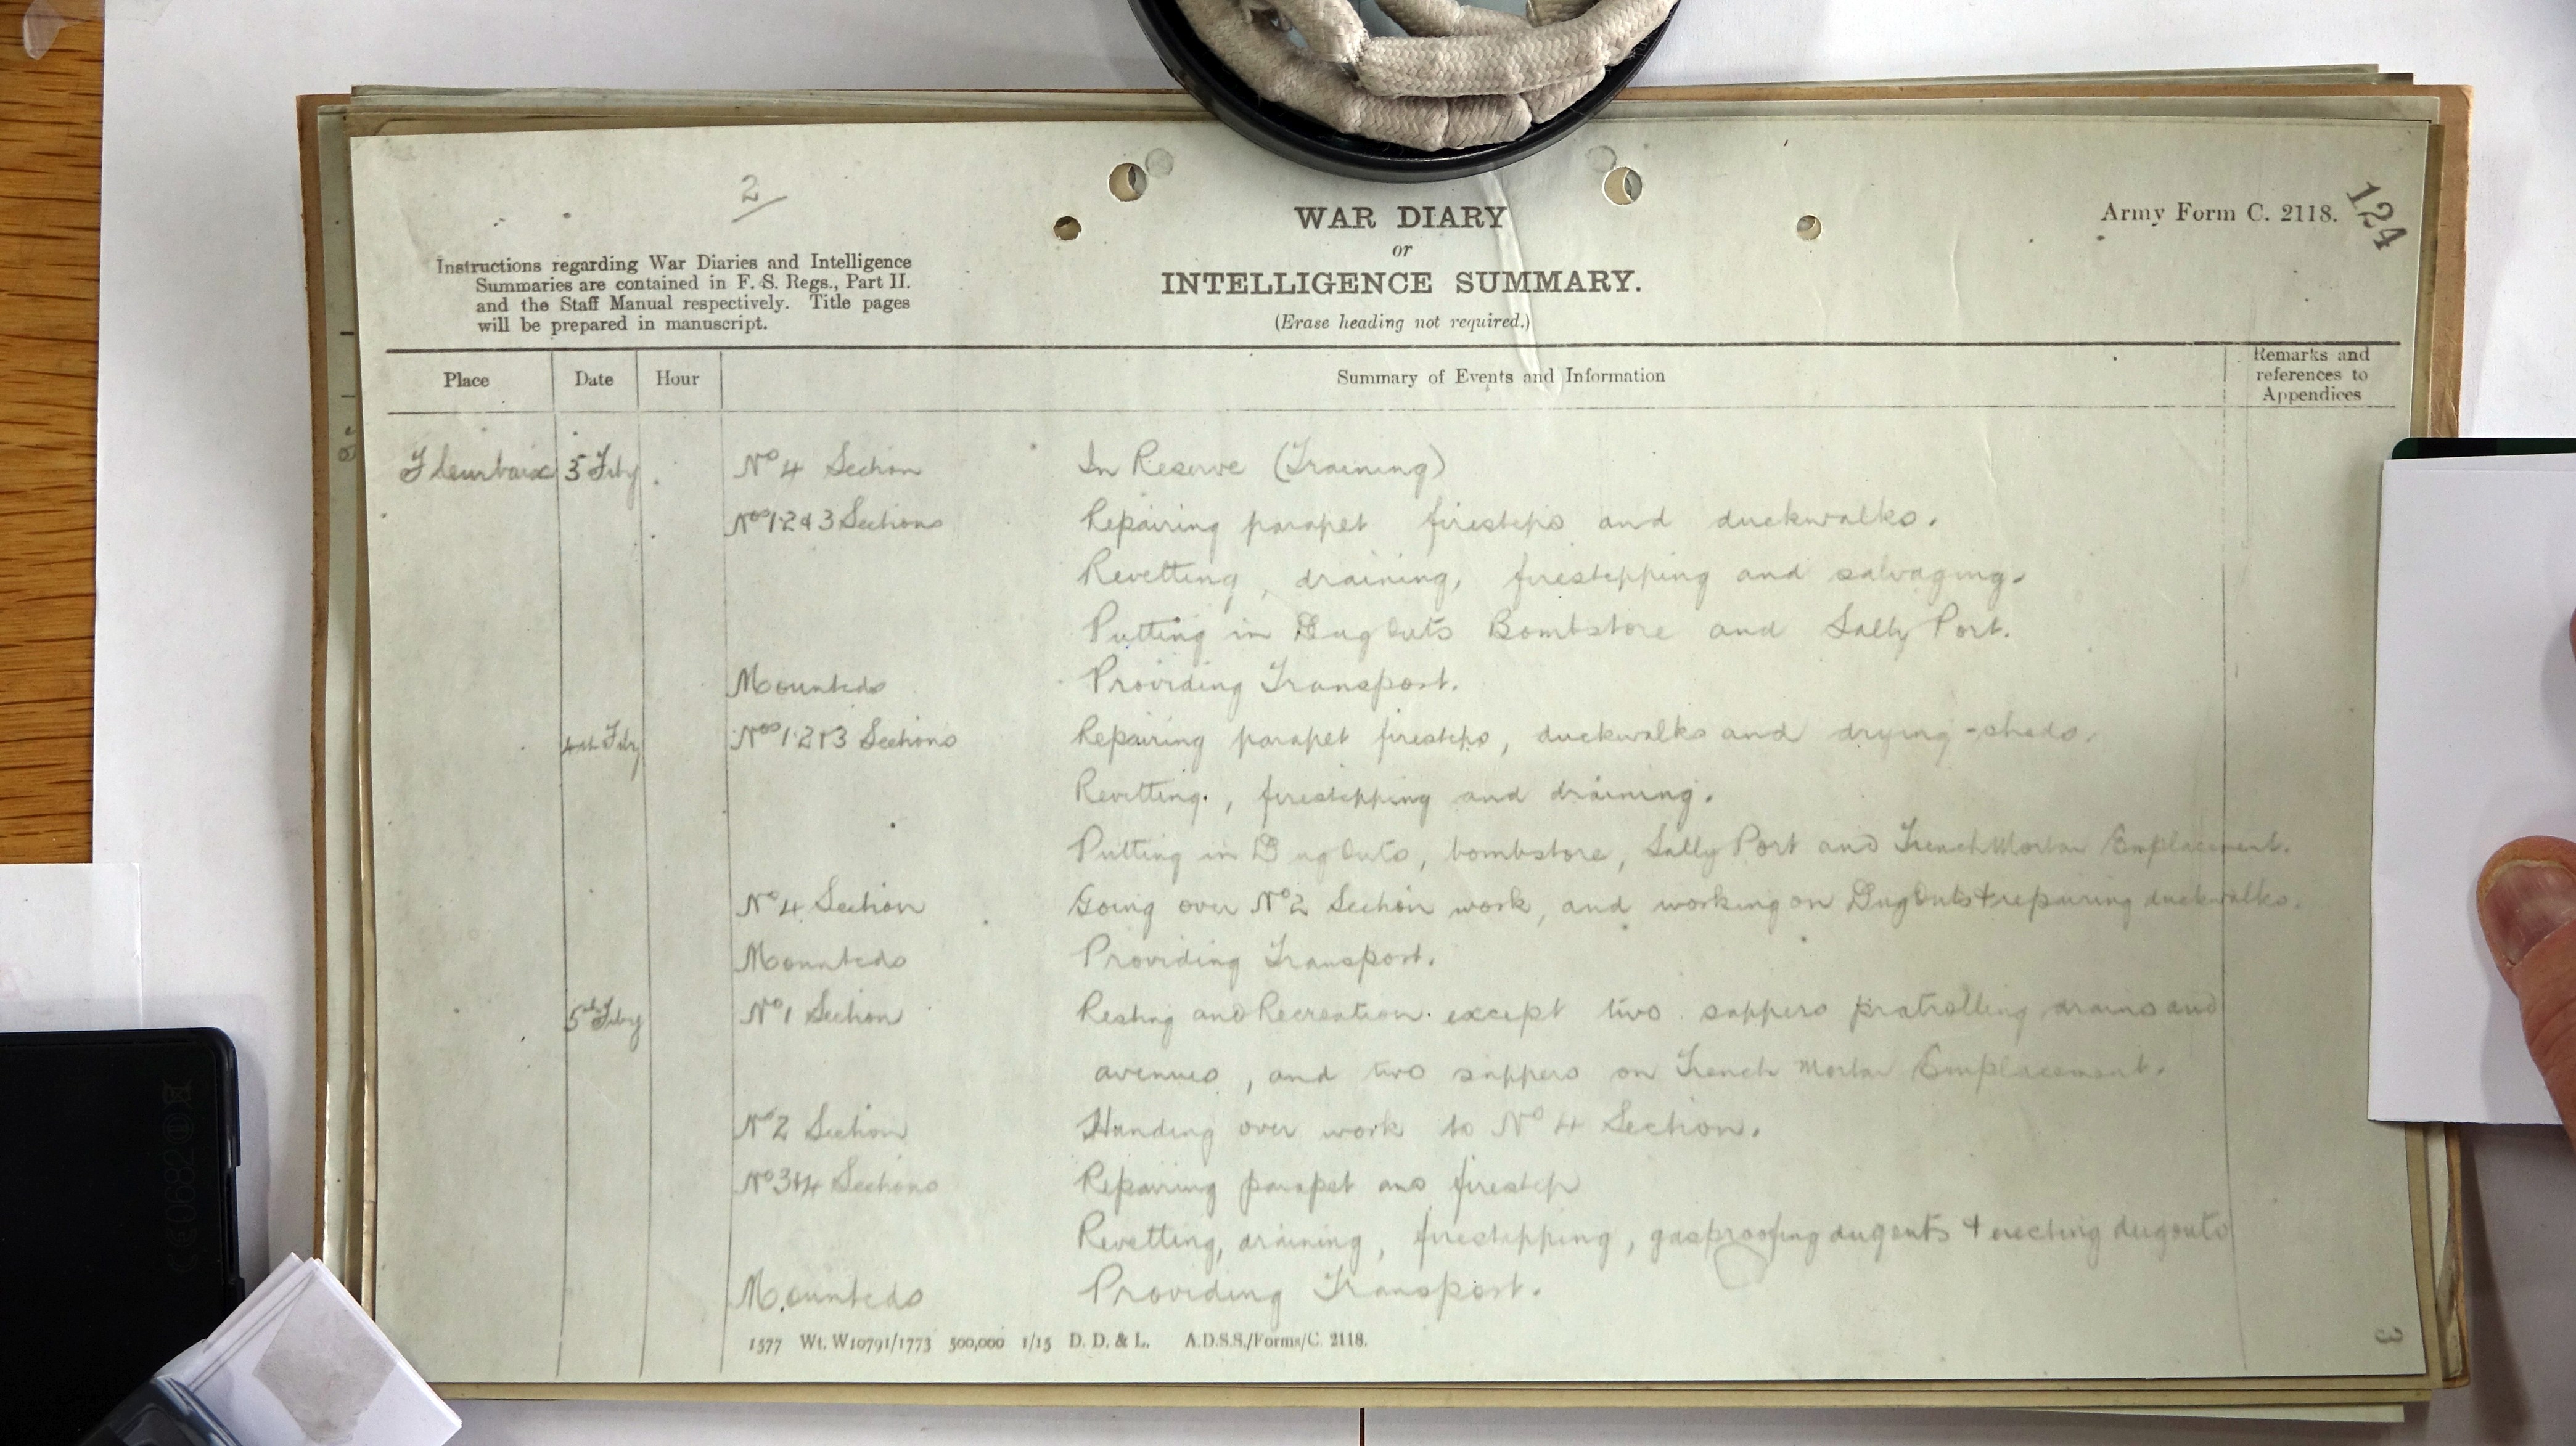 2
124
WAR DIARY
or
INTELLIGENCE SUMMARY.
(Erase heading not required.)
Army Form C. 2118.
Instructions regarding War Diaries and Intelligence
Summaries are contained in F. S. Regs., Part II.
and the Staff Manual respectively. Title pages
will be prepared in manuscript.
Place Date Hour Summary of Events and Information Remarks and
references to
Appendices
Fleurbaix 3 Feby Nº 4 Section In Reserve (Training)
Nos 1·2 & 3 Sections Repairing parapet firesteps and duckwalks.
Revetting, draining, firestepping and salvaging.
Putting in Dug Outs Bombstore and Sally Port.
Mounteds Providing Transport.
4th Feby Nos 1·2 & 3 Sections Repairing parapet firesteps, duckwalks and drying-sheds.
Revetting, firestepping and draining.
Putting in Dug Outs, bombstore, Sally Port and Trench Mortar Emplacement.
Nº 4 Section Going over Nº 2 Section work, and working on Dug Outs & repairing duckwalks.
Mounteds Providing Transport.
5th Feby Nº 1 Section Resting and Recreation. except two sappers pratrolling drains and
avenues, and two sappers on Trench Mortar Emplacement.
Nº 2 Section Handing over work to Nº 4 Section.
Nº 3 & 4 Sections Repairing parapet and firestep
Revetting, draining, firestepping, gasproofing dugouts & erecting dugouts
Mounteds Providing Transport.
1577 Wt. W10791/1773 500,000 1/15 D. D. & L. A.D.S.S./Forms/C. 2118.
3